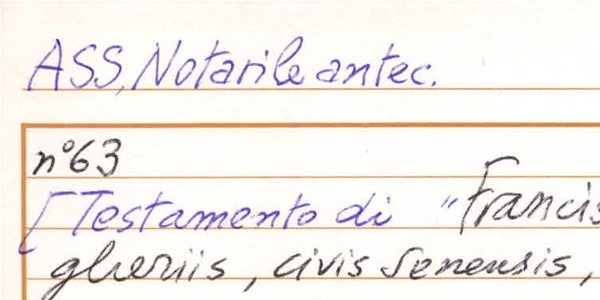 ASS, Notarile antec.
n°63
[Testamento di "Francis
gheriis, civis Senensis,